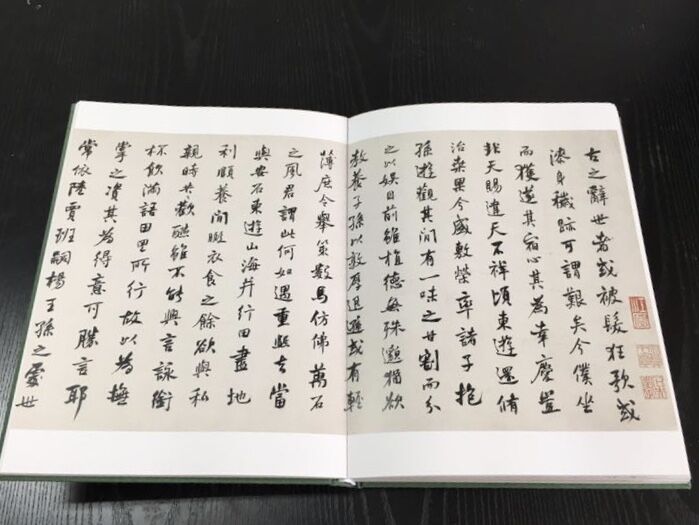 古之辭世者或被髮狂歌或
漆身穢跡可謂艱矣今僕坐
而獲逸遂其宿心其為幸慶豈
非天賜違天不祥頃東遊還脩
治桑果今盛敷榮率諸子抱
孫遊觀其間有一味之甘割而分
之以娛目前雖植德無殊邈猶欲
教養子孫以敦厚退讓或有輕
薄庶令舉策數馬仿佛萬石
之風君謂此何如遇重熙去當
與安石東遊山海并行田盡地
利頤養閒暇衣食之餘欲與私
親時共歡醼雖不能興言詠銜
杯飲滿語田里所行故以為撫
掌之資其為得意可勝言耶
常依陸賈班嗣楊王孫之處世